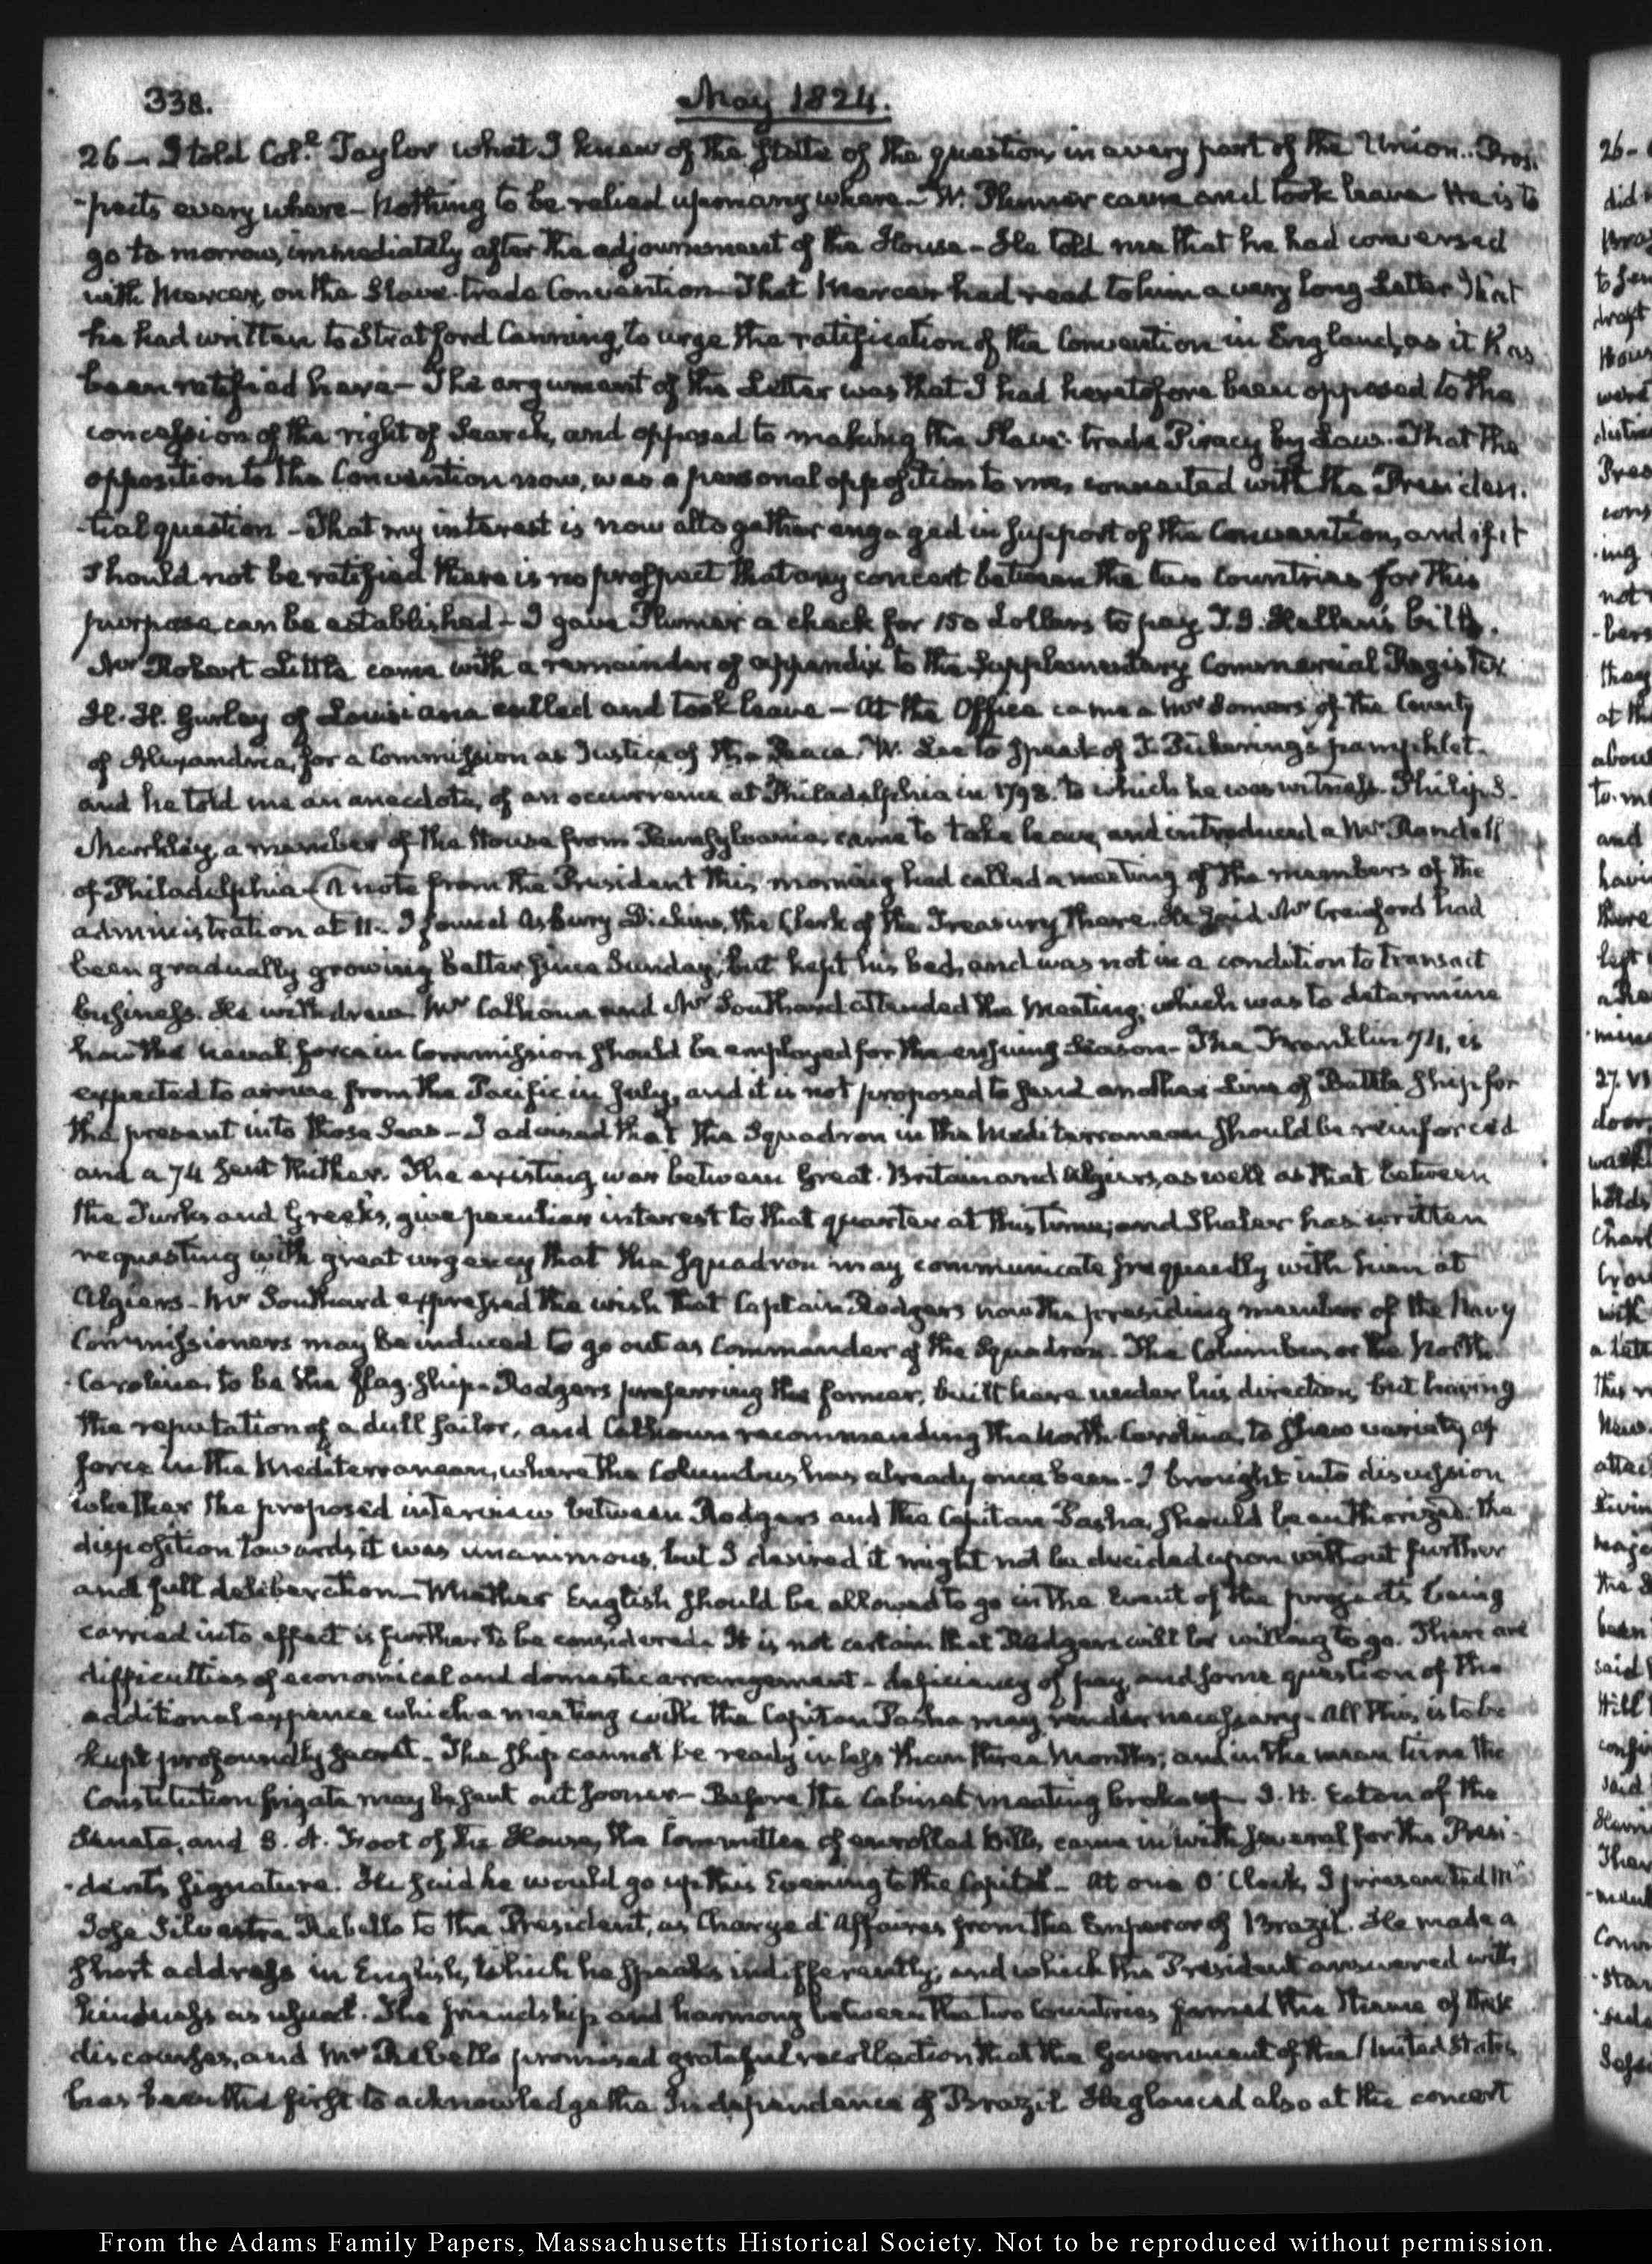 338.
May 1824.
26— I told Col.l Taylor what I knew of the State of the question, in every part of the Union.. Pros-
-pects every where— Nothing to be relied upon any where— W. Plumer came and took leave He is to
go to-morrow, immediately after the adjournment of the House— He told me that he had conversed
with Mercer, on the Slave-trade Convention— That Mercer had read to him a very long Letter that
he had written to Stratford Canning, to urge the ratification of the Convention in England, as it has
been ratified here— The argument of the Letter was that I had heretofore been opposed to the
concession of the right of Search, and opposed to making the Slave-trade Piracy by Law. That the
opposition to the Convention now, was a personal opposition to me, connected with the Presiden-
-tial question— That my interest is now altogether engaged in support of the Convention, and if it
should not be ratified there is no prospect that any concert between the two Countries for this
purpose can be established— I gave Plumer a check for 150 dollars to pay bills.
Mr Robert Little came with a remainder of appendix to the Supplementary Commercial Register
H. H. Gurley of Louisiana called and took leave— At the Office came a Mr Somers of the County
of Alexandria, for a Commission as Justice of the Peace. W. Lee to speak of T. Pickering's pamphlet.
and he told me an anecdote, of an occurrence at Philadelphia in 1798. to which he was witness. Philip S.
Markley, a member of the House from Pennsylvania, came to take leave, and introduced a Mr Randall
of Philadelphia— A note from the President this morning had called a meeting of the members of the
administration at 11.. I found Asbury Dickins, the Clerk of the Treasury there. He said Mr Crawford had
been gradually growing better since Sunday, but kept his bed, and was not in a condition to transact
business. He withdrew. Mr Calhoun and Mr Southard attended the Meeting; which was to determine
how the naval force in Commission should be employed for the ensuing Season— The Franklin 74, is
expected to arrive from the Pacific in July, and it is not proposed to send another Line of Battle Ship for
the present into those Seas— I advised that the Squadron in the Mediterranean should be reinforced
and a 74 sent thither. The existing war between Great-Britain and Algiers, as well as that between
the Turks and Greeks, give peculiar interest to that quarter at this time; and Shaler has written
requesting with great urgency that the squadron may communicate frequently with him at
Algiers— Mr Southard expressed the wish that Captain Rodgers now the presiding member of the Navy
Commissioners may be induced to go out as Commander of the Squadron. The Columbus, or the North-
-Carolina, to be the flag-ship— Rodgers preferring the former, built here under his direction, but having
the reputation of a dull sailor, and Calhoun recommending the North-Carolina, to shew variety of
force in the Mediterranean, where the Columbus has already once been— I brought into discussion
whether the proposed interview between Rodgers and the Capitan Pasha, should be authorized. the
disposition towards it was unanimous, but I desired it might not be decided upon without further
and full deliberation— Whether English should be allowed to go in the Event of the projects being
carried into effect is further to be considered. It is not certain that Rodgers will be willing to go. There are
difficulties of economical and domestic arrangement— deficiency of pay, and some question of the
additional expence which a meeting with the Capitan Pasha may render necessary— All this, is to be
kept profoundly secret— The ship cannot be ready in less than three Months; and in the mean time the
Constitution frigate may be sent out sooner— Before the Cabinet meeting broke up J. H. Eaton of the
Senate, and S. A. Foot of the House, the Committee of enrolled Bills, came in with several for the Presi-
-dent's signature. He said he would go up this Evening to the Capitol— At one O'Clock, I presented Mr
Jose Silvestre Rebello to the President, as Chargé d'Affaires from the Emperor of Brazil. He made a
short address in English, which he speaks indifferently, and which the President answered with
kindness as usual. The friendship and harmony between the two Countries formed the theme of their
discourses, and Mr Rebello promised grateful recollection that the Government of the United States
has been the first to acknowledge the Independence of Brazil. He glanced also at the concert
From the Adams Family Papers, Massachusetts Historical Society. Not to be reproduced without permission.